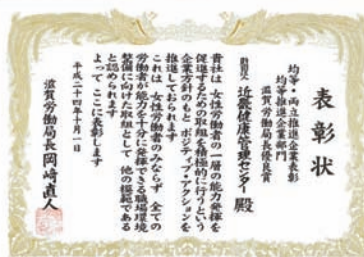 表彰状
均等・両立推進企業表彰
均等推進企業部門
滋賀労働局長優良賞
財団法人 近畿健康管理センター 殿
貴社は 女性労働者の一層の能力発揮を
促進するための取組を積極的に行うという
企業方針のもと ポジティブ・アクションを
推進しておられます
これは 女性労働者のみならず 全ての
労働者が能力を十分に発揮できる職場環境
整備に向けた取組として 他の模範である
と認められます
よって ここに表彰します
平成二十四年十月一日
滋賀労働局長 岡崎直人